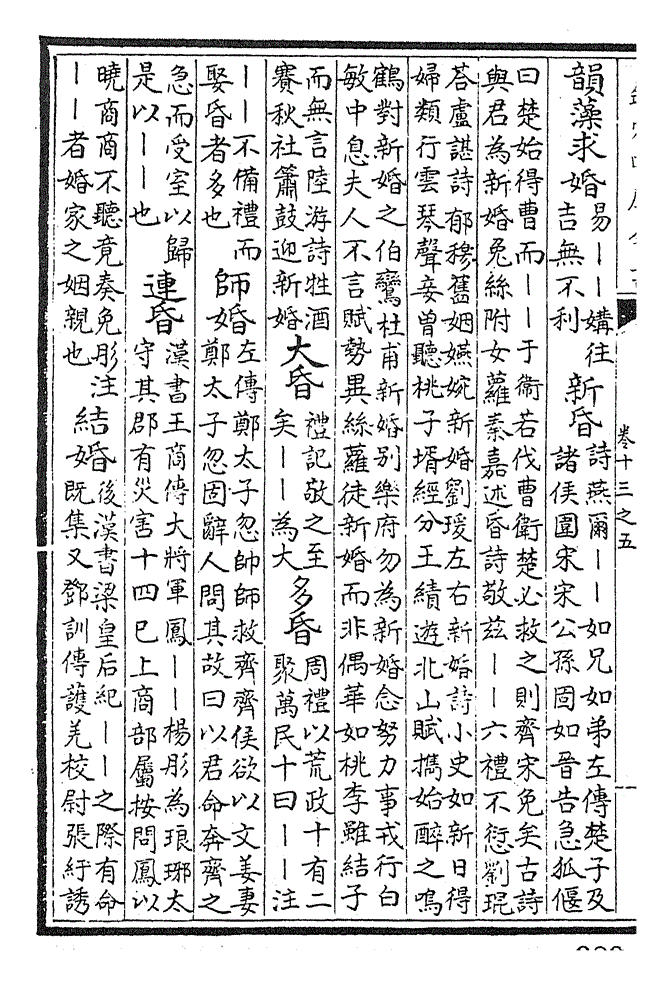 卷十三之五
韻藻求婚
易——媾往
吉無不利
新昏
詩燕爾——如兄如弟左傳楚子及
諸侯圍宋宋公孫固如晉告急狐偃
曰楚始得曹而——于衛若伐曹衛楚必救之則齊宋免矣古詩
與君為新婚兔絲附女蘿秦嘉述昏詩敬兹——六禮不愆劉琨
荅盧諶詩郁穆舊姻嬿婉新婚劉瑗左右新婚詩小史如新日得
婦類行雲琴聲妾曾聽桃子壻經分王績遊北山賦擕始醉之鳴
鶴對新婚之伯鸞杜甫新婚别樂府勿為新婚念努力事戎行白
敏中息夫人不言賦勢異絲蘿徒新婚而非偶華如桃李雖結子
而無言陸游詩牲酒
賽秋社簫鼓迎新婚
大昏
禮記敬之至
矣——為大
多昏
周禮以荒政十有二
聚萬民十曰——注
——不備禮而
娶昏者多也
師婚
左傳鄭太子忽帥師救齊齊侯欲以文姜妻
鄭太子忽固辭人問其故曰以君命奔齊之
急而受室以歸
是以——也
連昏
漢書王商傳大將軍鳳——楊肜為琅琊太
守其郡有災害十四已上商部屬按問鳳以
曉商商不聽竟奏免肜注
——者婚家之姻親也
結婚
後漢書梁皇后紀——之際有命
既集又鄧訓傳護羌校尉張紆誘